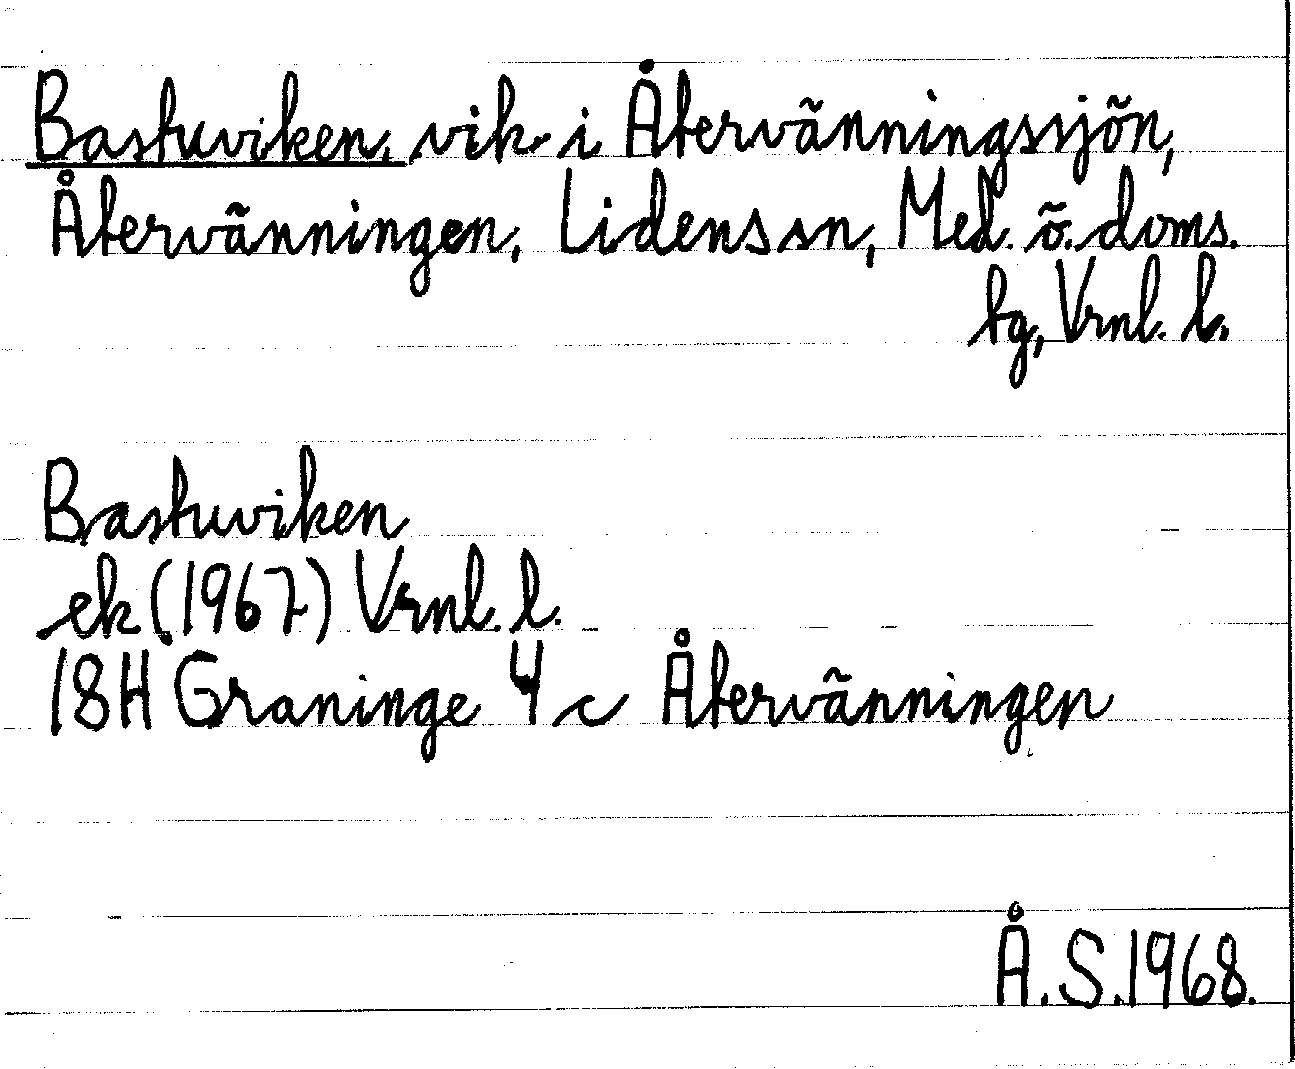 Bastuviken, vik i Återvänningssjön,
Återvänningen, Lidens sn, Med. ö. doms.
tg, Vrnl. l.
Bastuviken
ek (1967) Vrnl. l.
18H Graninge 4 c Återvänningen
Å.S. 1968.